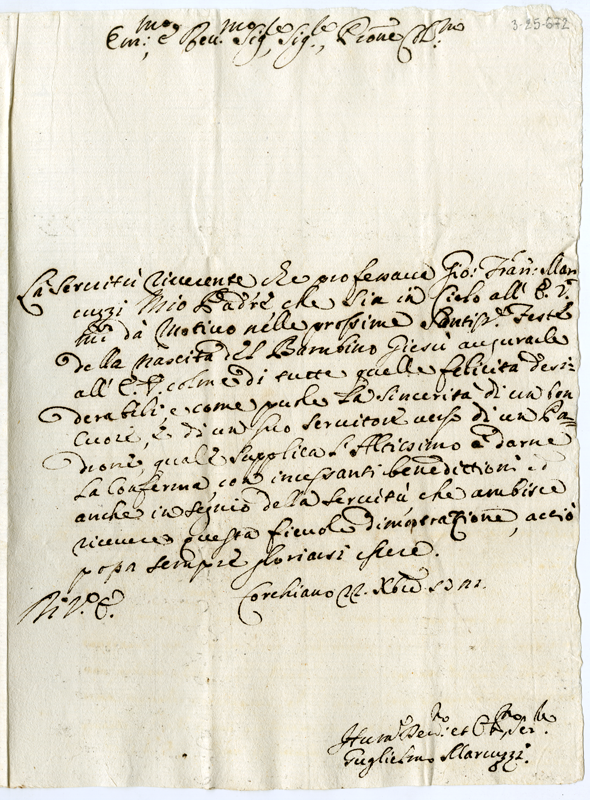 3-25-672
Em:mo e Rev:mo Sig:re, Sig:re, Prone Col:mo
La Servitù riverente che professava Gio: Fran: Mar
cuzzi Mio Padre che sia in Cielo all' E. V.
mi dà Motivo nelle prossime Santiss:e Feste
della Nascita del Bambino Giesù augurarle
all' E. V. colme di tutte quelle felicità desi=
derabili, e come puole La sincerità di un bon
Cuore, e di un suo servitore verso di un Pa=
drone, quale supplica l'Altissimo à darne
La Conferma con incessanti benedittioni ed
anche in segno della servitù che ambisce
ricevere questa fievole dimostratione, acciò
possa sempre gloriarsi essere.
Di V. E.
Corchiano 22. Xbre
Rev:mo et Ser:re
Guglielmo Marcuzzi